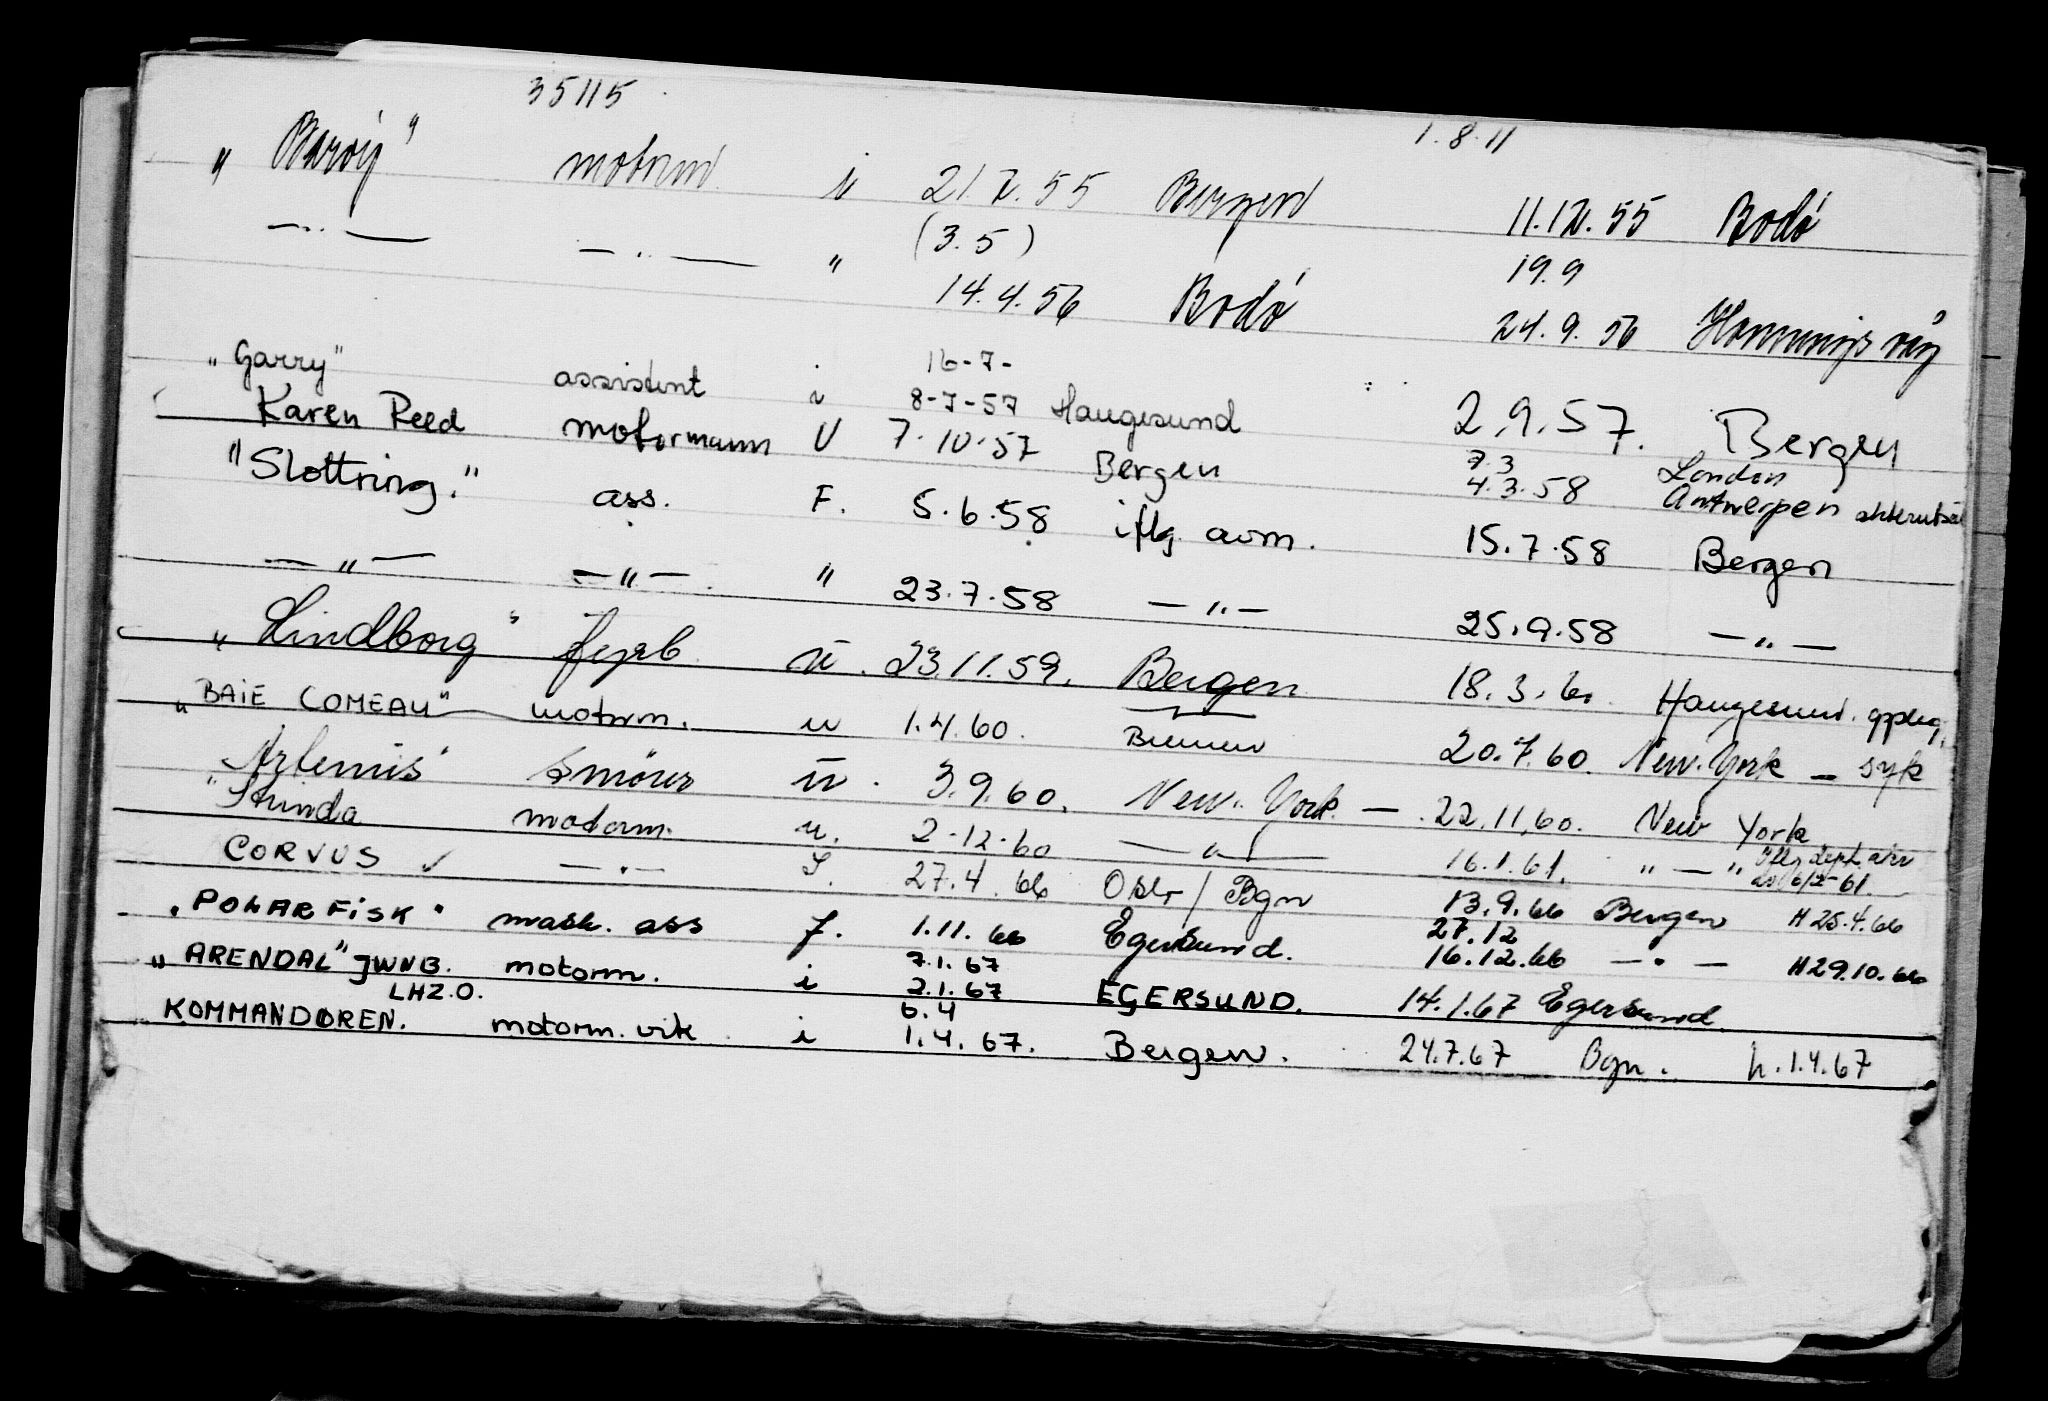 35115 1.8.11
"Barøy" motorm i 21.7.55 Bergen 11.12.55 Bodø
(3.5) 19.9
—"— —"— " 14.4.56 Bodø 24.9.56
16-7-
"Garry" assistent i 8-7-57 Haugesund 2.9.57. Bergen
7.3 London
Karen Reed motormann U 7.10.57 Bergen 4.3.58 Antwerpen
"Slottring." ass. F. 5.6.58 iflg. avm. 15.7.58 Bergen
—"— —"—. " 23.7.58 —"— 25.9.58 —"—
"Lindborg" fyrb u. 23.11.59. Bergen 18.3.60. Haugesund.
"BAIE COMEAU" motorm. u 1.4.60. Bremen 20.7.60. New-York – syk
"Artemis" Smörer u. 3.9.60. New-York — 22.11.60. New York
Strinda motorm. u. 2-12-60 —"— 16.1.61. "—"
CORVUS ✓ —"— S. 27.4.66 Oslo/Bgn 13.9.66 Bergen H 25.4.66
27.12
"POLARFISK" mask. ass f. 1.11.66 Egersund. 16.12.66 —"— H 29.10.66
7.1.67
"ARENDAL" JWNB. motorm. i 2.1.67 EGERSUND. 14.1.67 Egersund
LHZ.O. 6.4
KOMMANDØREN. motorm. vik i 1.4.67. Bergen. 24.7.67 Bgn. h.1.4.67